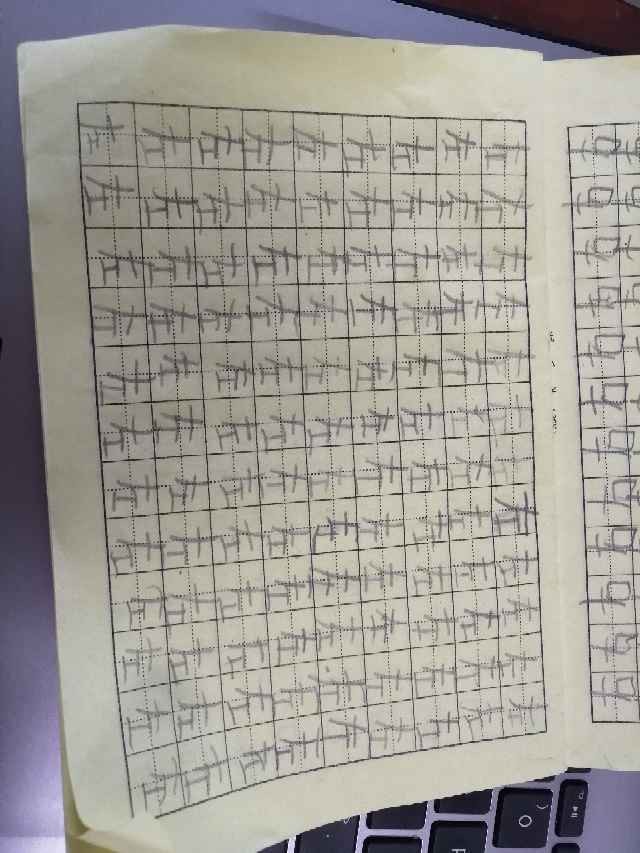 右右右右右右右右右右右右
左左左左左左左左左左左左
左左左左左左左左左左左左
左左左左左左左左左左左左
左左左左左左左左左左左左
左左左左左左左左左左左左
左左左左左左左左左左左左
左左左左左左左左左左左左
左左左左左左左左左左左左
左左左左左左左左左左左左